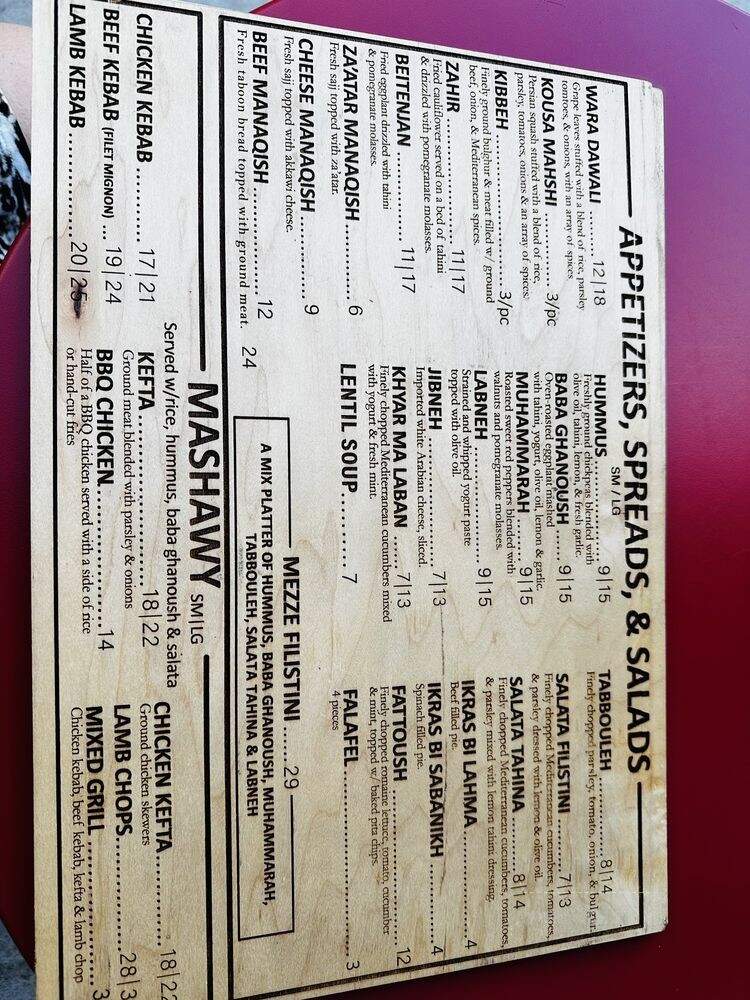 APPETIZERS, SPREADS, & SALADS
SM / LG
WARA DAWALI ......... 12|18
Grape leaves stuffed with a blend of rice, parsley
tomatoes, & onions, with an array of spices
KOUSA MAHSHI ............ 3/pc
Persian squash stuffed with a blend of rice,
parsley, tomatoes, onions & an array of spices.
KIBBEH ............................ 3/pc
Finely ground bulghur & meat filled w/ ground
beef, onion, & Mediterranean spices.
ZAHIR .......................... 11|17
Fried cauliflower served on a bed of tahini
& drizzled with pomegranate molasses.
BEITENJAN ................... 11|17
Fried eggplant drizzled with tahini
& pomegranate molasses.
ZA'ATAR MANAQISH ............. 6
Fresh sajj topped with za'atar.
CHEESE MANAQISH ............... 9
Fresh sajj topped with akkawi cheese.
BEEF MANAQISH .................. 12
Fresh taboon bread topped with ground meat. 24
HUMMUS .................. 9|15
Freshly ground chickpeas blended with
olive oil, tahini, lemon, & fresh garlic.
BABA GHANOUSH ....... 9|15
Oven-roasted eggplant mashed
with tahini, yogurt, olive oil, lemon & garlic.
MUHAMMARAH ......... 9|15
Roasted sweet red peppers blended with
walnuts and pomegranate molasses.
LABNEH ..................... 9|15
Strained and whipped yogurt paste
topped with olive oil.
JIBNEH ........................ 7|13
Imported white Arabian cheese, sliced.
KHYAR MA LABAN ...... 7|13
Finely chopped Mediterranean cucumbers mixed
with yogurt & fresh mint.
LENTIL SOUP ............... 7
TABBOULEH ................ 8|14
Finely chopped parsley, tomato, onion, & bulgur.
SALATA FILISTINI ......... 7|13
Finely chopped Mediterranean cucumbers, tomatoes,
& parsley dressed with lemon & olive oil.
SALATA TAHINA 8|14
Finely chopped Mediterranean cucumbers, tomatoes,
& parsley mixed with lemon tahini dressing.
IKRAS BI LAHMA .................. 4
Beef filled pie.
IKRAS BI SABANIKH .............. 4
Spinach filled pie.
FATTOUSH ........................ 12
Finely chopped romaine lettuce, tomato, cucumber
& mint, topped w/ baked pita chips.
FALAFEL ............................ 3
4 pieces
MEZZE FILISTINI ...... 29
A MIX PLATTER OF HUMMUS, BABA GHANOUSH, MUHAMMARAH,
TABBOULEH, SALATA TAHINA & LABNEH
MASHAWY SM|LG
Served w/rice, hummus, baba ghanoush & salata
CHICKEN KEBAB ............ 17|21
BEEF KEBAB (FILET MIGNON) ... 19|24
LAMB KEBAB .............. 20|25
KEFTA .......................... 18|22
Ground meat blended with parsley & onions
BBQ CHICKEN ..................... 14
Half of a BBQ chicken served with a side of rice
or hand-cut fries
CHICKEN KEFTA ............. 18|22
Ground chicken skewers
LAMB CHOPS ................. 28|3
MIXED GRILL ...................... 3
Chicken kebab, beef kebab, kefta & lamb chop